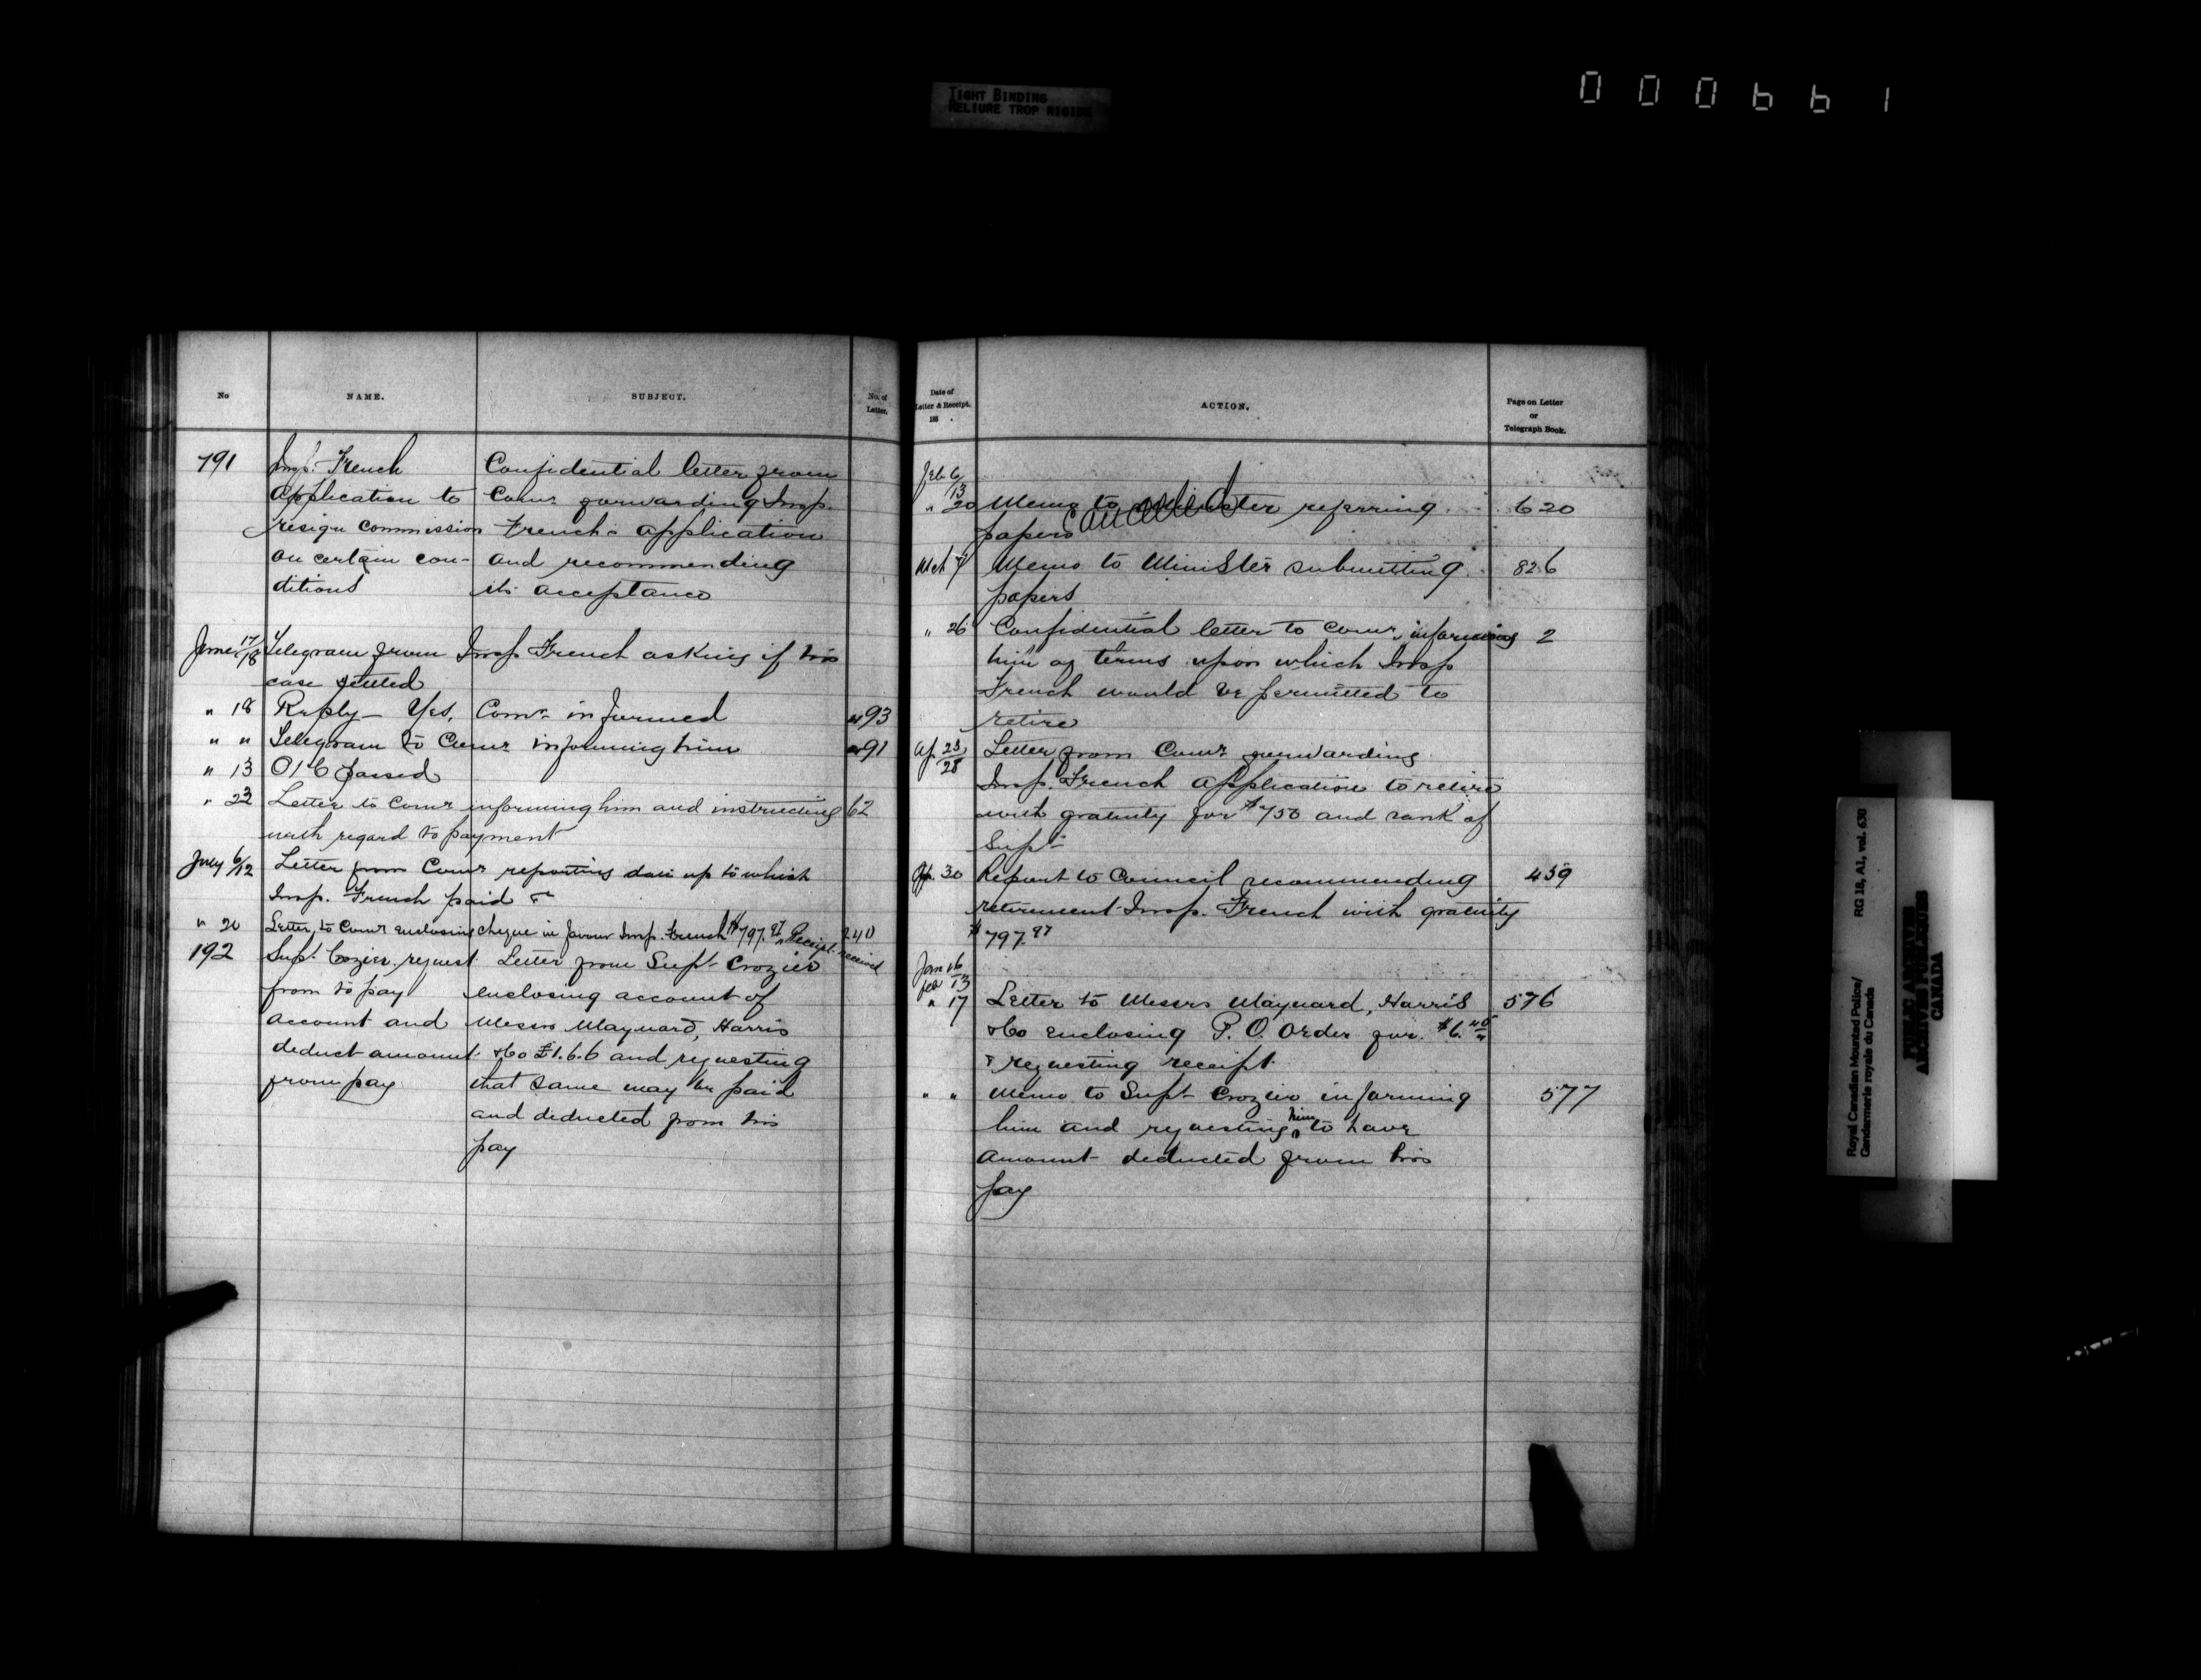 TIGHT BINDING
RELIURE TROP RIGIDE
000661
No
NAME.
SUBJECT.
No. of
Letter.
191
Insp. French
Application to
resign commission
on certain con-
ditions
Confidential letter from
Comr forwarding Insp.
French's application
and recommending
its acceptance
June 17/18 Telegram from Insp French asking if his
case settled
" 18 Reply — Yes, Comr informed 93
" " Telegram to Comr informing him 91
" 13 O/C passed
" 23 Letter to Comr informing him and instructing 62
with regard to payment
July 6/12 Letter from Comr reporting date up to which
Insp. French paid &c
" 20 Letter to Comr enclosing cheque in favour Insp. French $797.97 Receipt received 240
192
Supt. Crozier request
from to pay
account and
deduct amount
from pay
Letter from Supt Crozier
enclosing account of
Messrs Maynard, Harris
& Co £1.6.6 and requesting
that same may be paid
and deducted from his
pay
Date of
Letter & Receipt.
188 .
ACTION.
Page on Letter
or
Telegraph Book.
Feb 6/13
" 20 Memo to Minister referring 620
papers Cancelled
Mch 7 Memo to Minister submitting 826
papers
" 26 Confidential letter to Comr, informing 2
him of terms upon which Insp
French would be permitted to
retire
Ap 23/28 Letter from Comr forwarding
Insp. French application to retire
with gratuity for $750 and rank of
Supt
Ap. 30 Report to Council recommending 459
retirement Insp. French with gratuity
$797.97
Jan 16
Feb 13
" 17 Letter to Messrs Maynard, Harris 576
& Co enclosing P. O. Order for $6.45
& requesting receipt
" " Memo to Supt Crozier informing 577
him and requesting him to have
amount deducted from his
pay
Royal Canadian Mounted Police/
Gendarmerie royale du Canada
RG 18, A1, vol. 630
PUBLIC ARCHIVES
ARCHIVES PUBLIQUES
CANADA